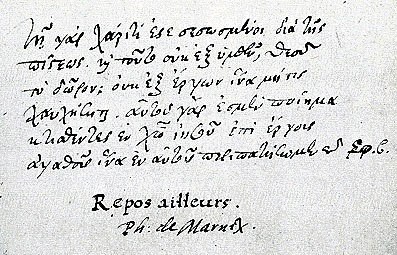 τῇ γὰρ χάριτί ἐστε σεσωσμένοι διὰ τῆς
πίστεως. κỳ τοῦτο οὐκ ἐξ ὑμῶν, θεοῦ
τὸ δῶρον· οὐκ ἐξ ἔργων ἵνα μήτις
καυχήσηται. αὐτοῦ γάρ ἐσμεν ποίημα
κτισθέντες ἐν χῶ ἰησοῦ ἐπὶ ἔργοις
ἀγαθοῖς ἵνα ἐν αὐτοῖς περιπατήσωμεν
Repos ailleurs.
Ph. de Marnix.